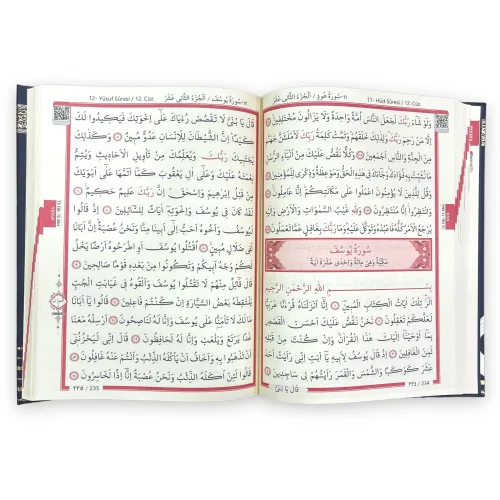 ١١-سُورَةُ هُودٍ / اَلْجُزْءُ الثَّانِي عَشَرَ
11- Hûd Sûresi / 12. Cüz
وَلَوْ شَاءَ رَبُّكَ لَجَعَلَ النَّاسَ اُمَّةً وَاحِدَةً وَلَا يَزَالُونَ مُخْتَلِفِينَ
اِلَّا مَنْ رَحِمَ رَبُّكَ وَلِذٰلِكَ خَلَقَهُمْ وَتَمَّتْ كَلِمَةُ رَبِّكَ لَاَمْلَـَٔنَّ جَهَنَّمَ
مِنَ الْجِنَّةِ وَالنَّاسِ اَجْمَعِينَ وَكُلًّا نَقُصُّ عَلَيْكَ مِنْ اَنْبَاءِ الرُّسُلِ
مَا نُثَبِّتُ بِهِ فُؤَادَكَ وَجَاءَكَ فِي هٰذِهِ الْحَقُّ وَمَوْعِظَةٌ وَذِكْرٰى لِلْمُؤْمِنِينَ
وَقُلْ لِلَّذِينَ لَا يُؤْمِنُونَ اعْمَلُوا عَلٰى مَكَانَتِكُمْ اِنَّا عَامِلُونَ
وَانْتَظِرُوا اِنَّا مُنْتَظِرُونَ وَلِلّٰهِ غَيْبُ السَّمٰوَاتِ وَالْاَرْضِ وَاِلَيْهِ
يُرْجَعُ الْاَمْرُ كُلُّهُ فَاعْبُدْهُ وَتَوَكَّلْ عَلَيْهِ وَمَا رَبُّكَ بِغَافِلٍ عَمَّا تَعْمَلُونَ
سُورَةُ يُوسُفَ
مَكِّيَّةٌ وَهِيَ مِائَةٌ وَاِحْدٰى عَشْرَةَ اٰيَةً
بِسْمِ اللّٰهِ الرَّحْمٰنِ الرَّحِيمِ
الٓرٰ تِلْكَ اٰيَاتُ الْكِتَابِ الْمُبِينِ اِنَّا اَنْزَلْنَاهُ قُرْاٰنًا عَرَبِيًّا
لَعَلَّكُمْ تَعْقِلُونَ نَحْنُ نَقُصُّ عَلَيْكَ اَحْسَنَ الْقَصَصِ
بِمَا اَوْحَيْنَا اِلَيْكَ هٰذَا الْقُرْاٰنَ وَاِنْ كُنْتَ مِنْ قَبْلِهِ
لَمِنَ الْغَافِلِينَ اِذْ قَالَ يُوسُفُ لِاَبِيهِ يَا اَبَتِ اِنِّي رَاَيْتُ اَحَدَ
عَشَرَ كَوْكَبًا وَالشَّمْسَ وَالْقَمَرَ رَاَيْتُهُمْ لِي سَاجِدِينَ
قَالَ يَا بُنَيَّ
٢٣٤ / 234
١٢-سُورَةُ يُوسُفَ / اَلْجُزْءُ الثَّانِي عَشَرَ
12- Yûsuf Sûresi / 12. Cüz
قَالَ يَا بُنَيَّ لَا تَقْصُصْ رُءْيَاكَ عَلٰى اِخْوَتِكَ فَيَكِيدُوا لَكَ
كَيْدًا اِنَّ الشَّيْطَانَ لِلْاِنْسَانِ عَدُوٌّ مُبِينٌ وَكَذٰلِكَ
يَجْتَبِيكَ رَبُّكَ وَيُعَلِّمُكَ مِنْ تَأْوِيلِ الْاَحَادِيثِ وَيُتِمُّ
نِعْمَتَهُ عَلَيْكَ وَعَلٰى اٰلِ يَعْقُوبَ كَمَا اَتَمَّهَا عَلٰى اَبَوَيْكَ
مِنْ قَبْلُ اِبْرٰهِيمَ وَاِسْحٰقَ اِنَّ رَبَّكَ عَلِيمٌ حَكِيمٌ
لَقَدْ كَانَ فِي يُوسُفَ وَاِخْوَتِهِ اٰيَاتٌ لِلسَّائِلِينَ اِذْ قَالُوا
لَيُوسُفُ وَاَخُوهُ اَحَبُّ اِلٰى اَبِينَا مِنَّا وَنَحْنُ عُصْبَةٌ اِنَّ اَبَانَا
لَفِي ضَلَالٍ مُبِينٍ اُقْتُلُوا يُوسُفَ اَوِ اطْرَحُوهُ اَرْضًا يَخْلُ
لَكُمْ وَجْهُ اَبِيكُمْ وَتَكُونُوا مِنْ بَعْدِهِ قَوْمًا صَالِحِينَ
قَالَ قَائِلٌ مِنْهُمْ لَا تَقْتُلُوا يُوسُفَ وَاَلْقُوهُ فِي غَيَابَتِ الْجُبِّ
يَلْتَقِطْهُ بَعْضُ السَّيَّارَةِ اِنْ كُنْتُمْ فَاعِلِينَ قَالُوا يَا اَبَانَا
مَا لَكَ لَا تَأْمَنَّا عَلٰى يُوسُفَ وَاِنَّا لَهُ لَنَاصِحُونَ اَرْسِلْهُ مَعَنَا
غَدًا يَرْتَعْ وَيَلْعَبْ وَاِنَّا لَهُ لَحَافِظُونَ قَالَ اِنِّي لَيَحْزُنُنِي
اَنْ تَذْهَبُوا بِهِ وَاَخَافُ اَنْ يَأْكُلَهُ الذِّئْبُ وَاَنْتُمْ عَنْهُ غَافِلُونَ
قَالُوا لَئِنْ اَكَلَهُ الذِّئْبُ وَنَحْنُ عُصْبَةٌ اِنَّا اِذًا لَخَاسِرُونَ
٢٣٥ / 235